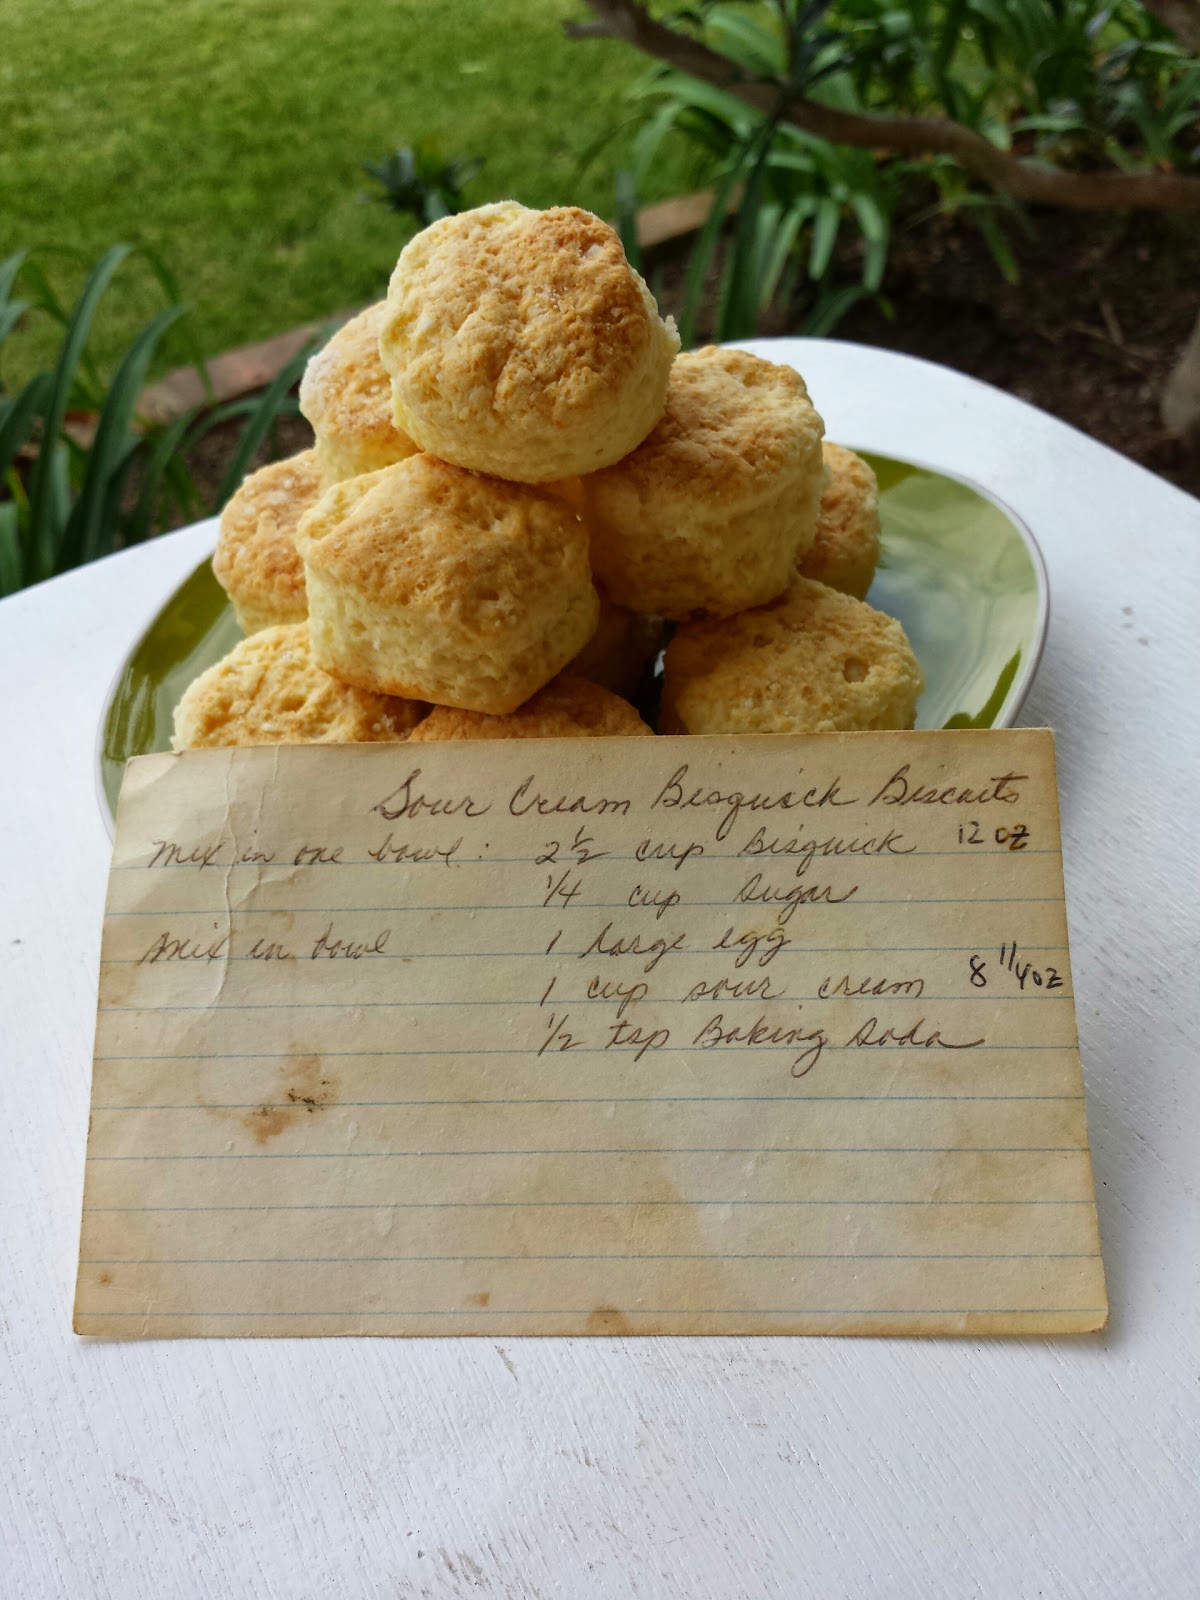 Sour Cream Bisquick Biscuits
Mix in one bowl: 2 1/2 cup Bisquick 12 oz
1/4 cup Sugar
Mix in bowl 1 large egg
1 cup sour cream 8 1/4 oz
1/2 tsp Baking Soda